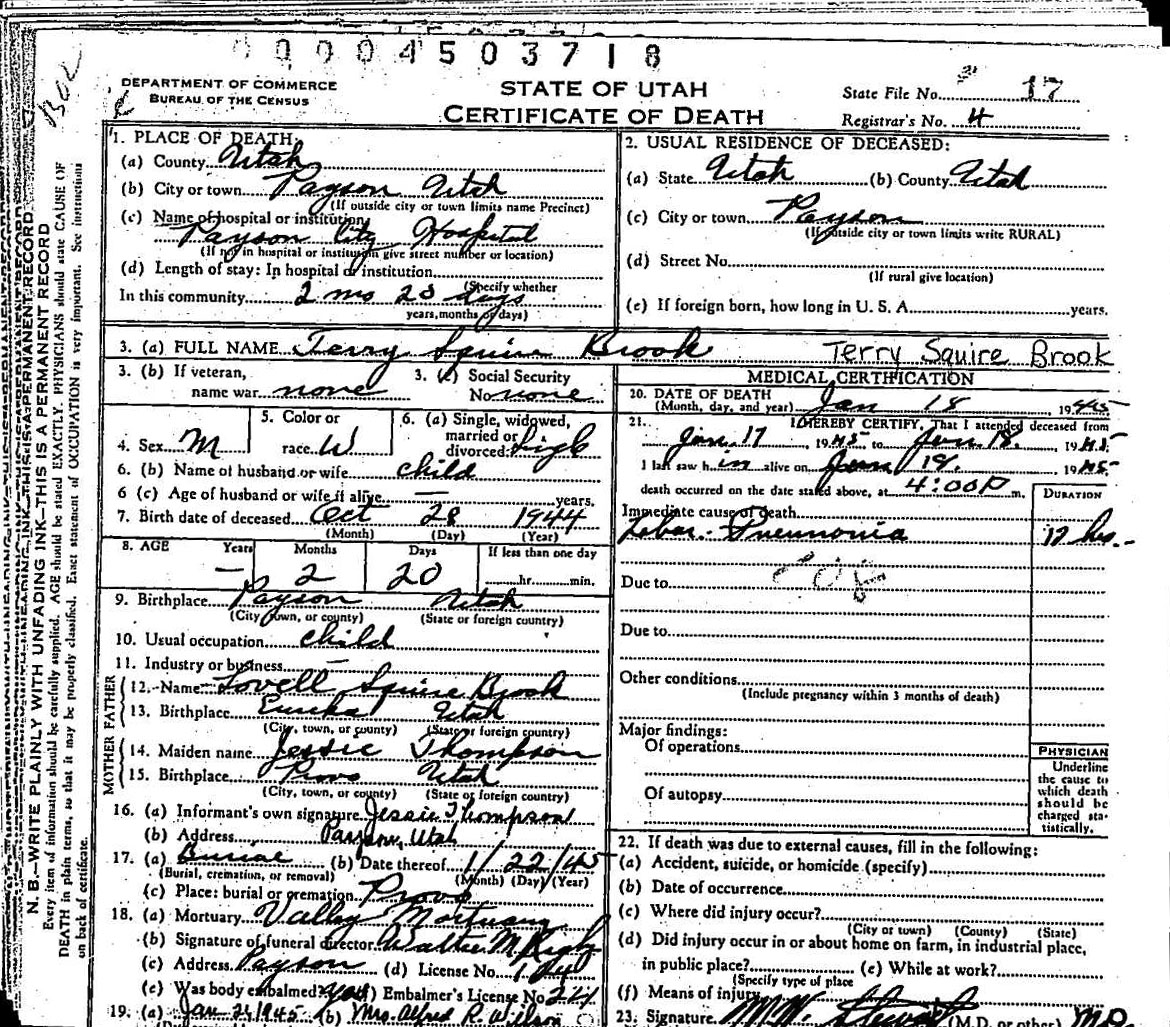 00004503718
DEPARTMENT OF COMMERCE
BUREAU OF THE CENSUS
STATE OF UTAH
CERTIFICATE OF DEATH
State File No. 17
Registrar's No. 4
N. B.—WRITE PLAINLY WITH UNFADING INK—THIS IS A PERMANENT RECORD
Every item of information should be carefully supplied. AGE should be stated EXACTLY. PHYSICIANS should state CAUSE OF
DEATH in plain terms, so that it may be properly classified. Exact statement of OCCUPATION is very important. See instructions
on back of certificate.
1. PLACE OF DEATH:
(a) County Utah
(b) City or town Payson Utah
(If outside city or town limits name Precinct)
(c) Name of hospital or institution:
Payson City Hospital
(If not in hospital or institution give street number or location)
(d) Length of stay: In hospital or institution
(Specify whether
In this community 2 mo 20 days
years, months or days)
2. USUAL RESIDENCE OF DECEASED:
(a) State Utah (b) County Utah
(c) City or town Payson
(If outside city or town limits write RURAL)
(d) Street No.
(If rural give location)
(e) If foreign born, how long in U. S. A. years.
3. (a) FULL NAME Terry Squire Brook Terry Squire Brook
3. (b) If veteran, name war none
3. (c) Social Security No none
4. Sex M
5. Color or race W
6. (a) Single, widowed, married or divorced: Single
6. (b) Name of husband or wife child
6 (c) Age of husband or wife if alive — years.
7. Birth date of deceased Oct 28 1944
(Month) (Day) (Year)
8. AGE Years Months Days If less than one day
— 2 20 hr. min.
9. Birthplace Payson Utah
(City town, or county) (State or foreign country)
10. Usual occupation child
11. Industry or business —
FATHER
12. Name Lovell Squire Brook
13. Birthplace Eureka Utah
(City, town, or county) (State or foreign country)
MOTHER
14. Maiden name Jessie Thompson
15. Birthplace Provo Utah
(City, town, or county) (State or foreign country)
16. (a) Informant's own signature Jessie Thompson
(b) Address Payson, Utah
17. (a) Burial (b) Date thereof 1/22/45
(Burial, cremation, or removal) (Month) (Day) (Year)
(c) Place: burial or cremation Provo
18. (a) Mortuary Valley Mortuary
(b) Signature of funeral director Walter M. Rigby
(c) Address Payson (d) License No.
(e) Was body embalmed? yes (f) Embalmer's License No 24
19. (a) Jan 1945 (b) Mrs. Alfred R. Wilson
MEDICAL CERTIFICATION
20. DATE OF DEATH
(Month, day, and year) Jan 18 1945
21. I HEREBY CERTIFY, That I attended deceased from
Jan. 17 1945 to Jan. 18. 1945
I last saw him alive on Jan 18. 1945
death occurred on the date stated above, at 4:00 P m.
DURATION
Immediate cause of death
Lobar Pneumonia 12 hrs.
Due to
Due to
Other conditions
(Include pregnancy within 3 months of death)
Major findings:
Of operations
Of autopsy
PHYSICIAN
Underline
the cause to
which death
should be
charged sta-
tistically.
22. If death was due to external causes, fill in the following:
(a) Accident, suicide, or homicide (specify)
(b) Date of occurrence
(c) Where did injury occur?
(City or town) (County) (State)
(d) Did injury occur in or about home on farm, in industrial place,
in public place? (e) While at work?
(Specify type of place
(f) Means of injury
23. Signature M.W. Stewart (M.D. or other) M.D.